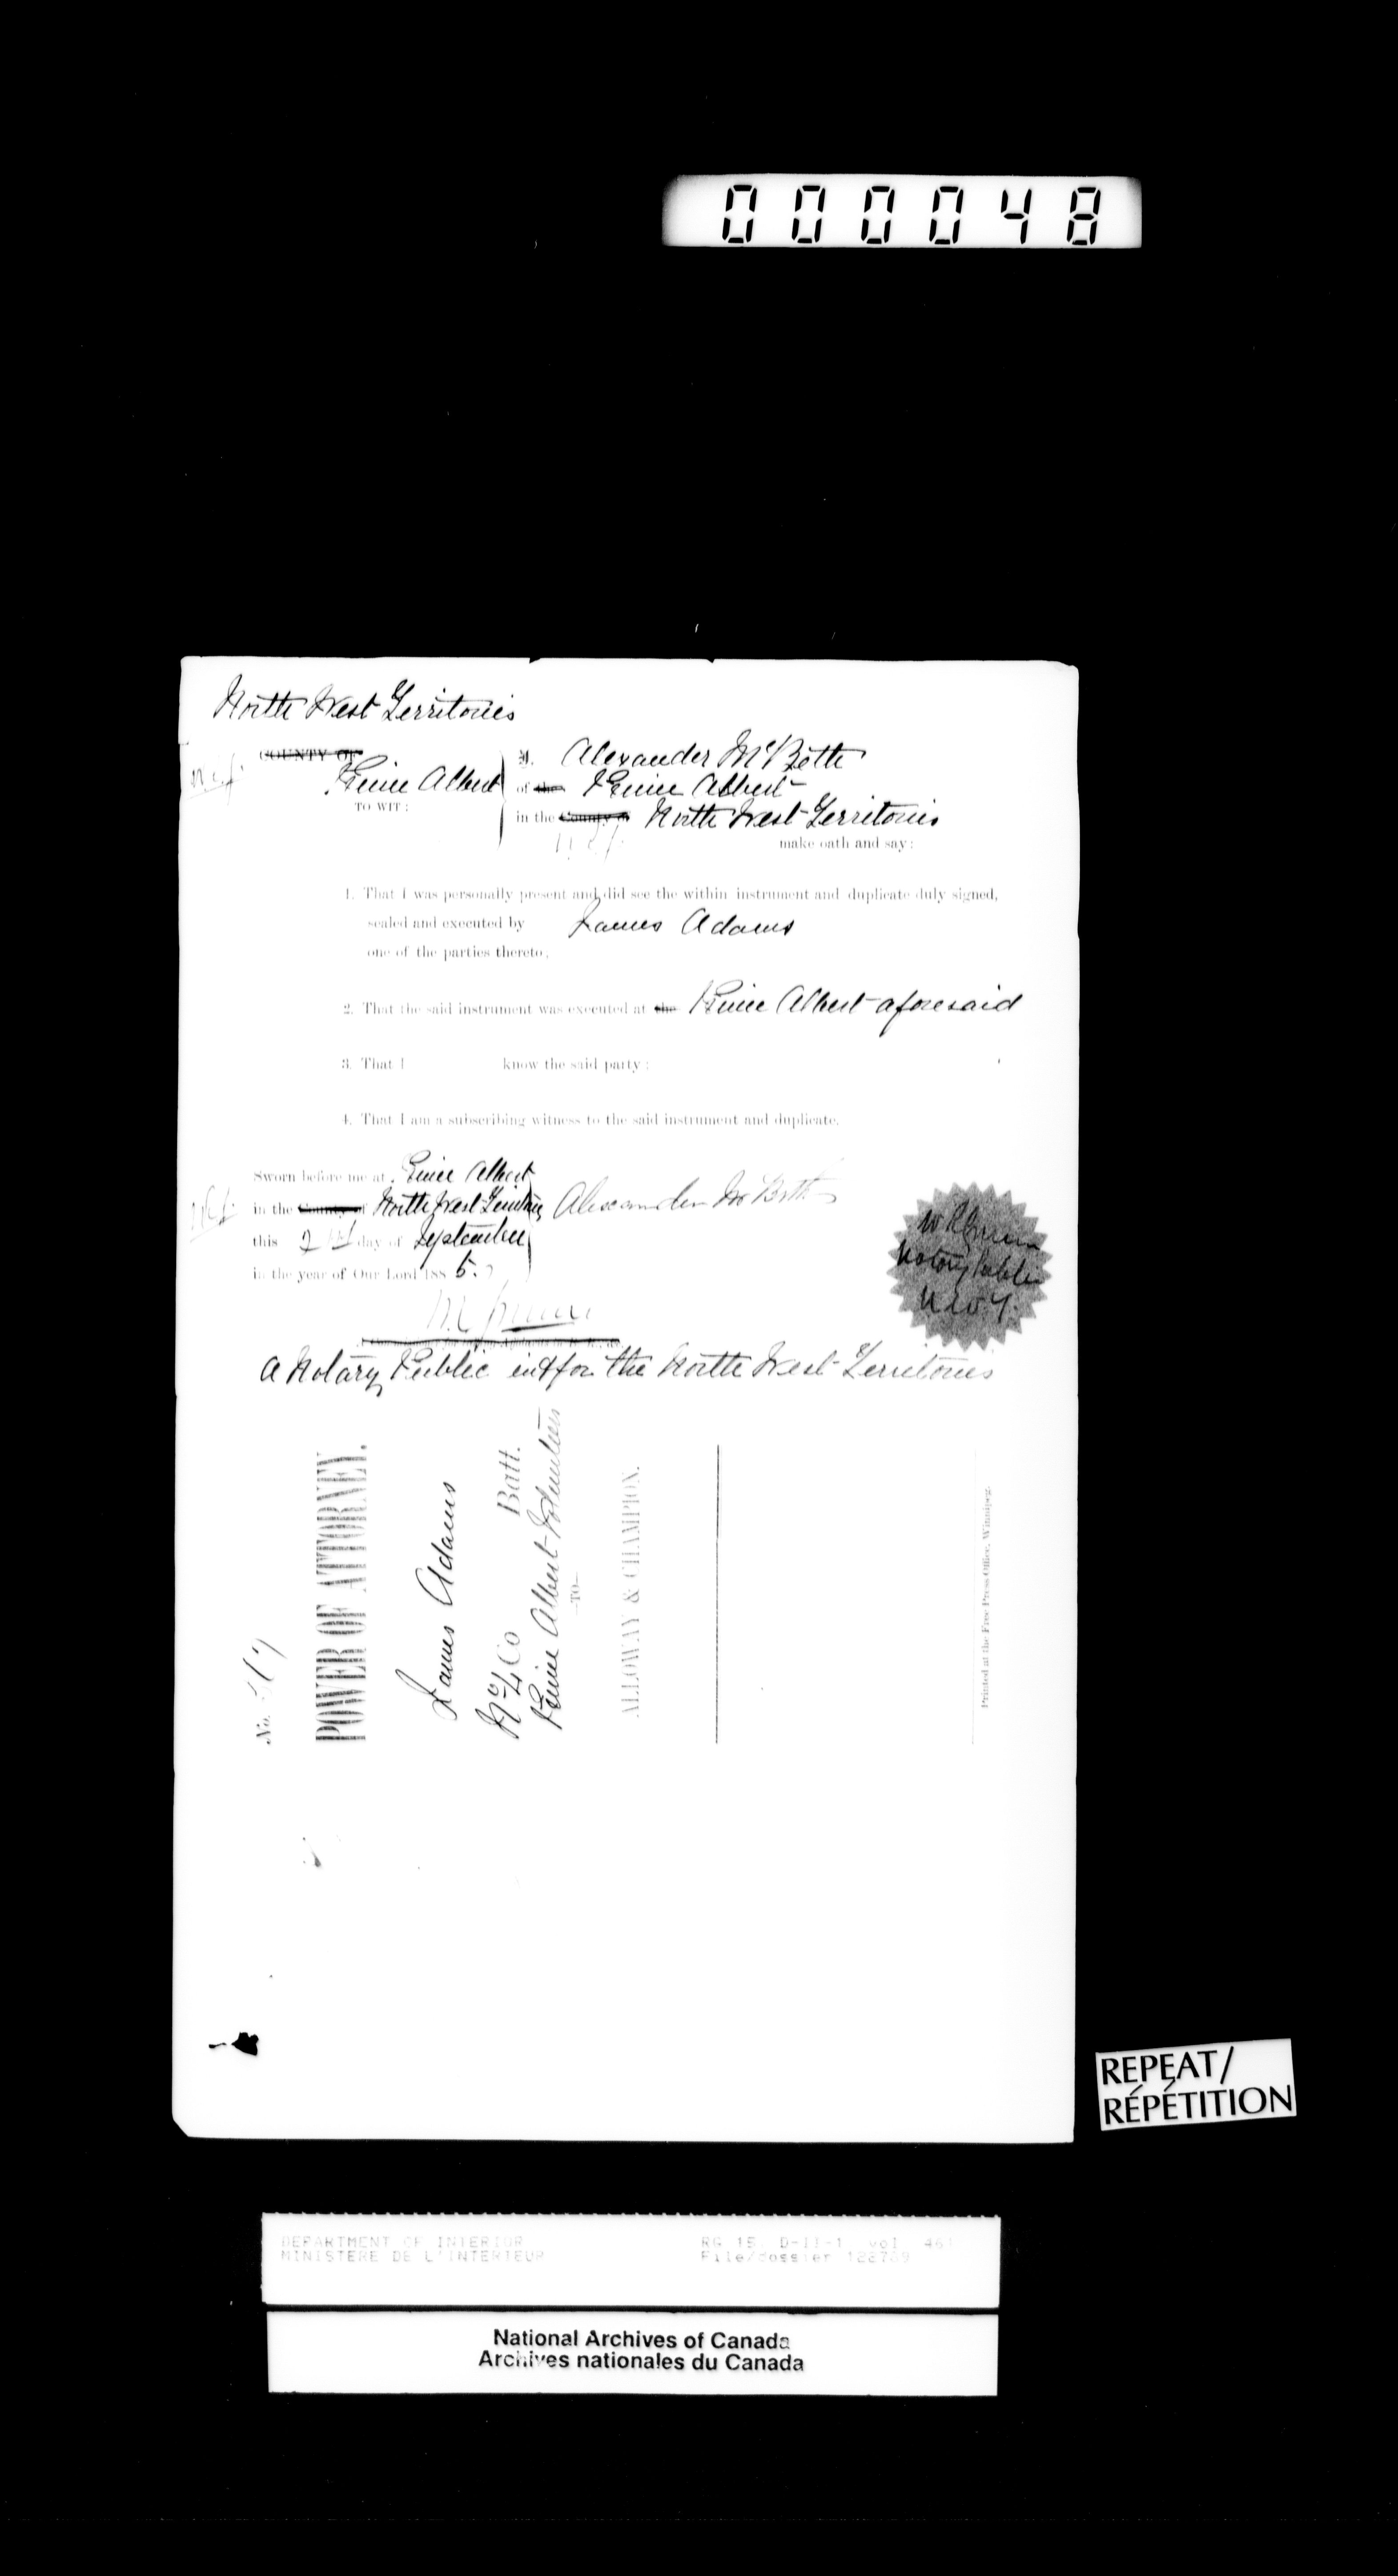 000048
North West Territories
COUNTY OF
Prince Albert
TO WIT:
I. Alexander McBeth
of the Prince Albert
in the County of North West Territories
make oath and say:
1. That I was personally present and did see the within instrument and duplicate duly signed,
sealed and executed by James Adams
one of the parties thereto,
2. That the said instrument was executed at the Prince Albert aforesaid
3. That I know the said party:
4. That I am a subscribing witness to the said instrument and duplicate.
Sworn before me at Prince Albert
in the County of North West Territories
this day of September
in the year of Our Lord 1885.
Alexander McBeth
Notary Public
N W T.
A Notary Public in & for the North West Territories
No.
POWER OF ATTORNEY.
James Adams
Co Batt.
Prince Albert Volunteers
—TO—
ALLOWAY & CHAMPION.
Printed at the Free Press Office, Winnipeg.
REPEAT/
RÉPÉTITION
DEPARTMENT OF INTERIOR
MINISTERE DE L'INTERIEUR
RG 15, D-II-1, vol.
File/dossier
National Archives of Canada
Archives nationales du Canada